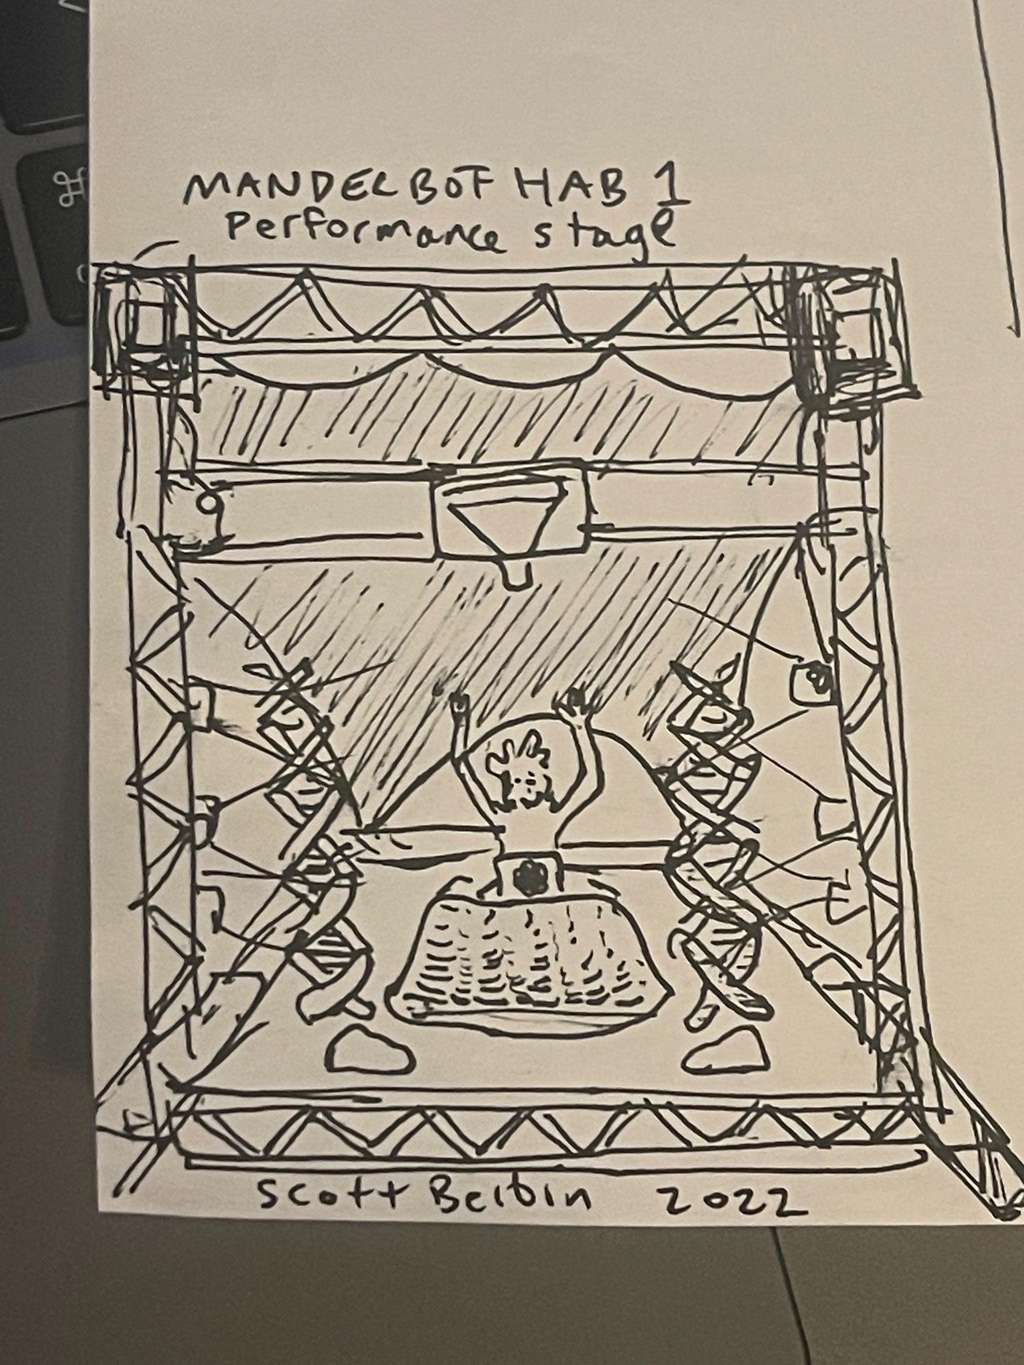 MANDELBOT HAB 1
Performance stage
Scott Beibin 2022
⌘